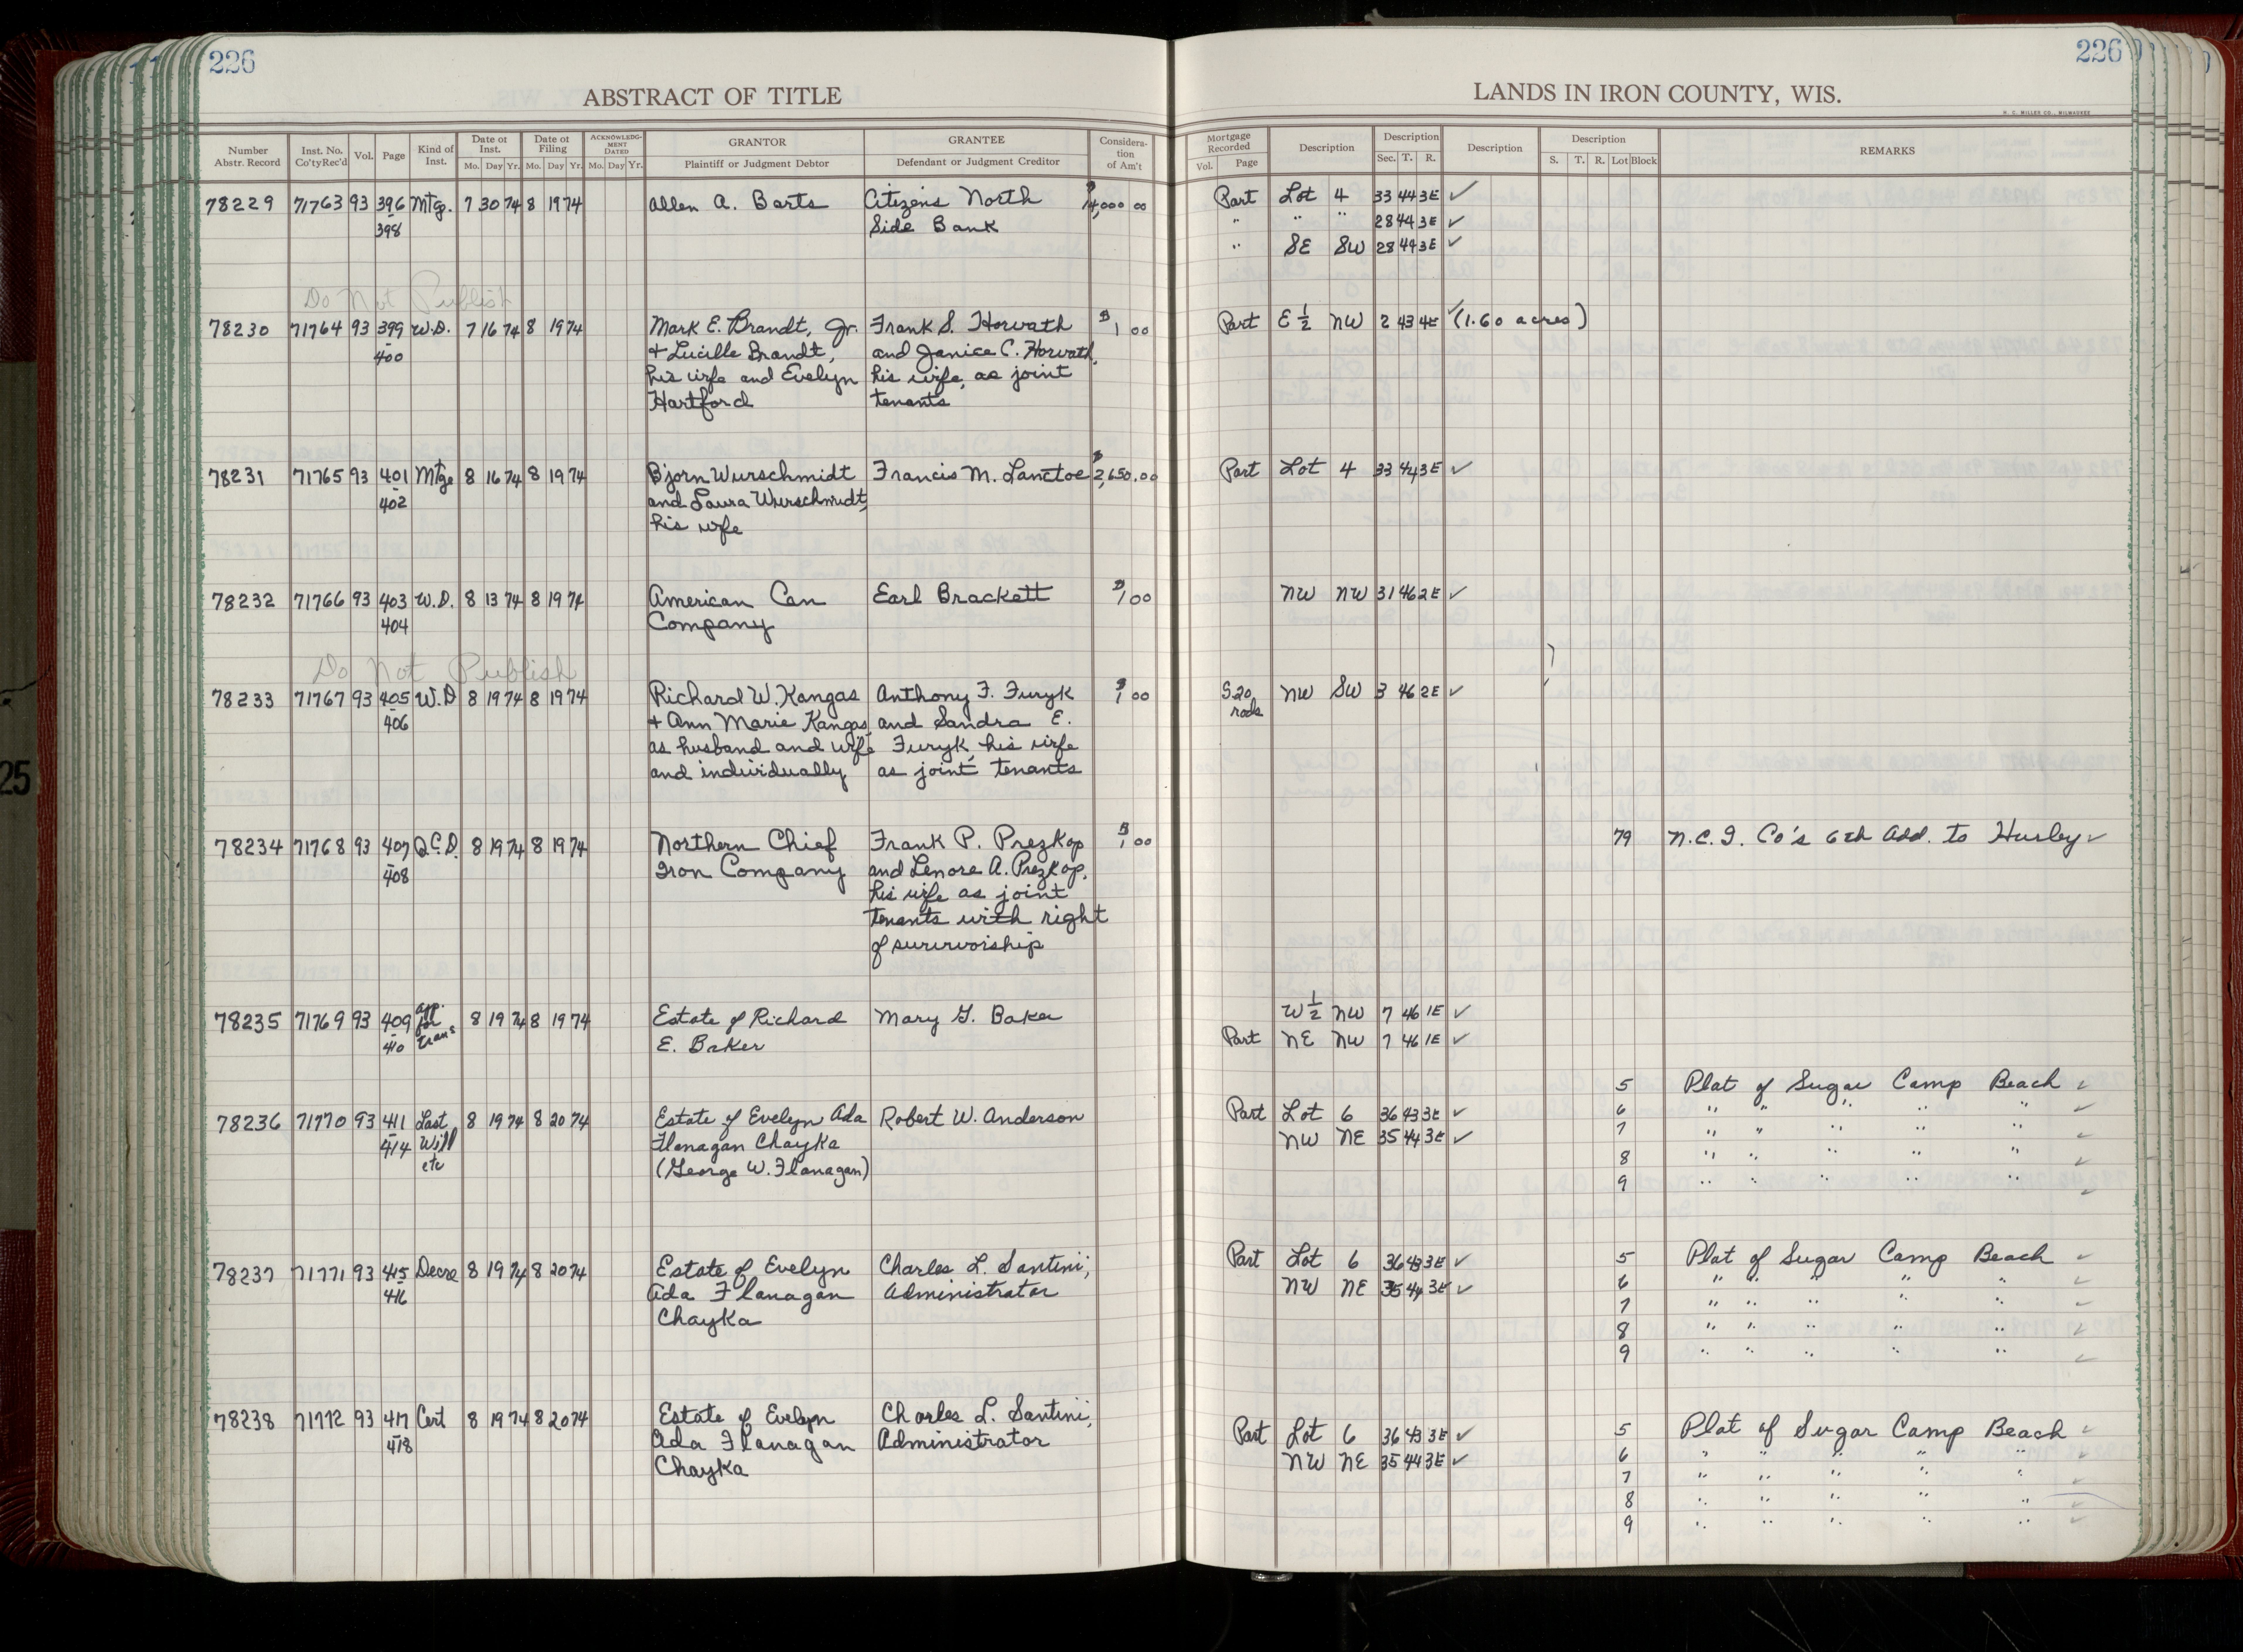 226
226
ABSTRACT OF TITLE
LANDS IN IRON COUNTY, WIS.
H. C. MILLER CO., MILWAUKEE
Number Abstr. Record | Inst. No. Co'ty Rec'd | Vol. | Page | Kind of Inst. | Date of Inst. Mo. Day Yr. | Date of Filing Mo. Day Yr. | ACKNOWLEDGMENT DATED Mo. Day Yr. | GRANTOR Plaintiff or Judgment Debtor | GRANTEE Defendant or Judgment Creditor | Consideration of Am't
Mortgage Recorded Vol. Page | Description | Description Sec. T. R. | Description | Description S. T. R. Lot Block | REMARKS
78229 71763 93 396 Mtg. 7 30 74 8 19 74 Allen A. Barts Citizens North $4,000 00 Part Lot 4 33 44 3E ✓
- 398 Side Bank " " " 28 44 3E ✓
" SE SW 28 44 3E ✓
Do Not Publish
78230 71764 93 399 W.D. 7 16 74 8 19 74 Mark E. Brandt, Jr. Frank S. Horvath $1 00 Part E ½ NW 2 43 4E ✓ (1.60 acres)
- 400 + Lucille Brandt, and Janice C. Horvath,
his wife and Evelyn his wife, as joint
Hartford tenants
78231 71765 93 401 Mtge 8 16 74 8 19 74 Bjorn Wurschmidt Francis M. Lanctoe $2,650.00 Part Lot 4 33 44 3E ✓
- 402 and Laura Wurschmidt,
his wife
78232 71766 93 403 W.D. 8 13 74 8 19 74 American Can Earl Brackett $1 00 NW NW 31 46 2E ✓
- 404 Company
Do Not Publish
78233 71767 93 405 W.D 8 19 74 8 19 74 Richard W. Kangas Anthony F. Furyk $1 00 S 20 NW SW 3 46 2E ✓
- 406 + Ann Marie Kangas and Sandra E. rods
as husband and wife Furyk, his wife
and individually as joint tenants
78234 71768 93 407 Q.C.D. 8 19 74 8 19 74 Northern Chief Frank P. Prezkop $1 00 79 N.C.I. Co's 6th Add. to Hurley ✓
- 408 Iron Company and Lenore A. Prezkop,
his wife as joint
tenants with right
of survivorship
78235 71769 93 409 App. for trans 8 19 74 8 19 74 Estate of Richard Mary G. Baker W ½ NW 7 46 1E ✓
- 410 E. Baker Part NE NW 7 46 1E ✓
5 Plat of Sugar Camp Beach ✓
78236 71770 93 411 Last 8 19 74 8 20 74 Estate of Evelyn Ada Robert W. Anderson Part Lot 6 36 43 3E ✓ 6 " " " " " ✓
- 414 Will Flanagan Chayka NW NE 35 44 3E ✓ 7 " " " " " ✓
etc (George W. Flanagan) 8 " " " " " ✓
9 " " " " " ✓
78237 71771 93 415 Decre 8 19 74 8 20 74 Estate of Evelyn Charles L. Santini, Part Lot 6 36 43 3E ✓ 5 Plat of Sugar Camp Beach ✓
- 416 Ada Flanagan Administrator NW NE 35 44 3E ✓ 6 " " " " " ✓
Chayka 7 " " " " " ✓
8 " " " " " ✓
9 " " " " " ✓
78238 71772 93 417 Cert 8 19 74 8 20 74 Estate of Evelyn Charles L. Santini, Part Lot 6 36 43 3E ✓ 5 Plat of Sugar Camp Beach ✓
- 418 Ada Flanagan Administrator NW NE 35 44 3E ✓ 6 " " " " " ✓
Chayka 7 " " " " " ✓
8 " " " " " ✓
9 " " " " " ✓
25